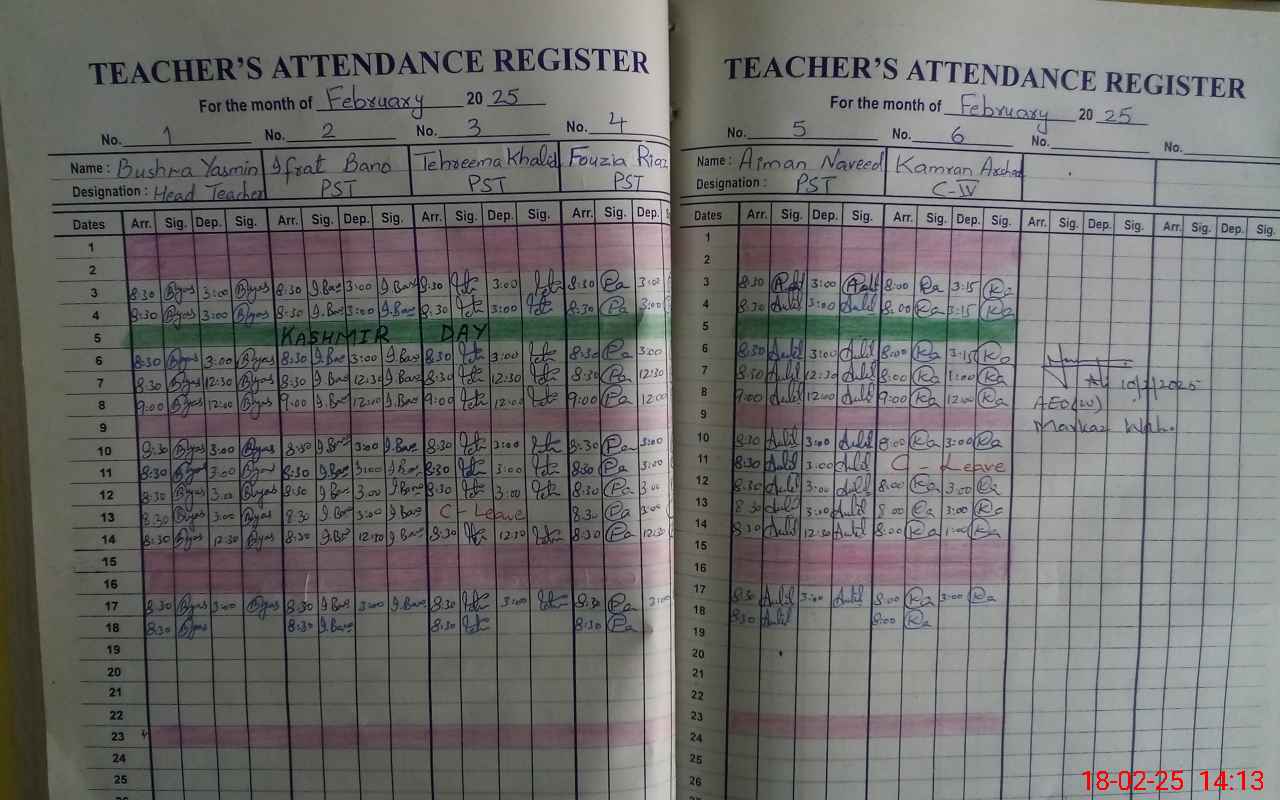 TEACHER'S ATTENDANCE REGISTER
For the month of February 20 25
No. 1 No. 2 No. 3 No. 4
Name : Bushra Yasmin Ifrat Bano Tehreema Khalid Fouzia Riaz
Designation : Head Teacher PST PST PST
Dates Arr. Sig. Dep. Sig. Arr. Sig. Dep. Sig. Arr. Sig. Dep. Sig. Arr. Sig. Dep.
1
2
3 8:30 3:00 8:30 I.Bano 3:00 I.Bano 8:30 3:00 8:30 3:00
4 8:30 3:00 8:30 I.Bano 3:00 I.Bano 8:30 3:00 8:30 3:00
5 KASHMIR DAY
6 8:30 3:00 8:30 I.Bano 3:00 I.Bano 8:30 3:00 8:30 3:00
7 8:30 12:30 8:30 I.Bano 12:30 I.Bano 8:30 12:30 8:30 12:30
8 9:00 12:00 9:00 I.Bano 12:00 I.Bano 9:00 12:00 9:00 12:00
9
10 8:30 3:00 8:30 I.Bano 3:00 I.Bano 8:30 3:00 8:30 3:00
11 8:30 3:00 8:30 I.Bano 3:00 I.Bano 8:30 3:00 8:30 3:00
12 8:30 3:00 8:30 I.Bano 3:00 I.Bano 8:30 3:00 8:30 3:00
13 8:30 3:00 8:30 I.Bano 3:00 I.Bano C-Leave 8:30 3:00
14 8:30 12:30 8:30 I.Bano 12:30 I.Bano 8:30 12:30 8:30 12:30
15
16
17 8:30 3:00 8:30 I.Bano 3:00 I.Bano 8:30 3:00 8:30 3:00
18 8:30 8:30 I.Bano 8:30 8:30
19
20
21
22
23
24
25
TEACHER'S ATTENDANCE REGISTER
For the month of February 20 25
No. 5 No. 6 No. No.
Name : Aiman Naveed Kamran Arshad
Designation : PST C-IV
Dates Arr. Sig. Dep. Sig. Arr. Sig. Dep. Sig. Arr. Sig. Dep. Sig. Arr. Sig. Dep. Sig.
1
2
3 8:30 3:00 8:00 Ka 3:15 Ka
4 8:30 3:00 8:00 Ka 3:15 Ka
5
6 8:30 3:00 8:00 Ka 3:15 Ka
7 8:30 12:30 8:00 Ka 1:00 Ka
8 9:00 12:00 9:00 Ka 12:00 Ka
9
10 8:30 3:00 8:00 Ka 3:00 Ka
11 8:30 3:00 C-Leave
12 8:30 3:00 8:00 Ka 3:00 Ka
13 8:30 3:00 8:00 Ka 3:00 Ka
14 8:30 12:30 8:00 Ka 1:00 Ka
15
16
17 8:30 3:00 8:00 Ka 3:00 Ka
18 8:30 8:00 Ka
19
20
21
22
23
24
25
26
10/2/2025
AEO(W)
Markaz
18-02-25 14:13